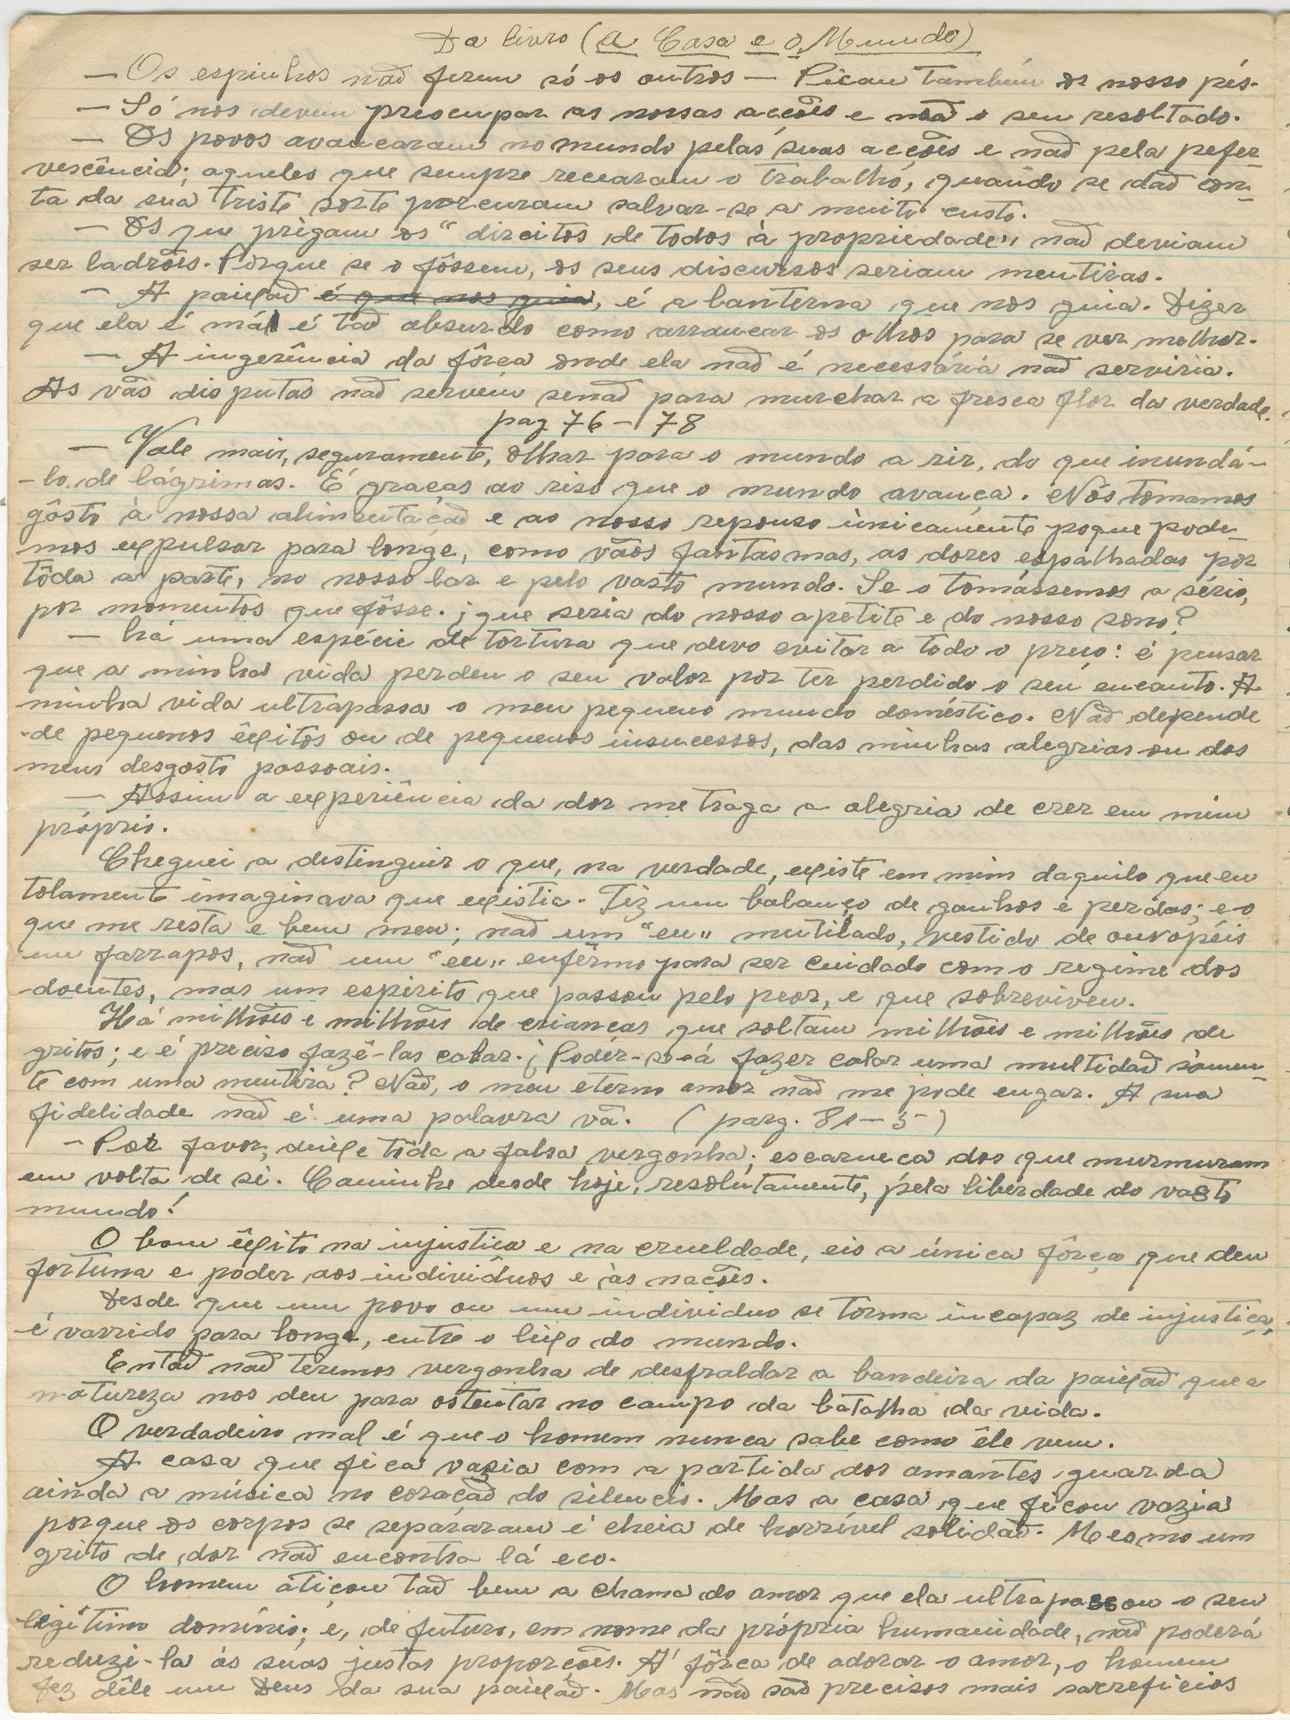 Do livro (A Casa e o Mundo)
— Os espinhos não ferem só os outros — Picam também os nosso pés.
— Só nos devem preocupar as nossas acções e não o seu resoltado.
— Os povos avançaram no mundo pelas suas acções e não pela pefer
vescência; aqueles que sempre recearam o trabalho, quando se dão con-
ta da sua triste sorte procuram salvar-se a muito custo.
— Os que prègam os "direitos de todos à propriedade", não deviam
ser ladrões. Porque se o fôssem, os seus discursos seriam mentiras.
— A paixão é que nos guia, é a lanterna que nos guia. Dizer
que ela é má é tão absurdo como arrancar os olhos para se ver melhor.
— A ingerência da fôrça onde ela não é necessária não serviria.
As vãs disputas não servem senão para murchar a fresca flor da verdade.
pag 76 — 78
— Vale mais, seguramente, olhar para o mundo a rir, do que inundá-
-lo de lágrimas. É graças ao riso que o mundo avança. Nós tomamos
gôsto à nossa alimentação e ao nosso repouso ùnicamente poque pode
mos expulsar para longe, como vãos fantasmas, as dores espalhadas por
tôda a parte, no nosso lar e pelo vasto mundo. Se o tomássemos a sério,
por momentos que fôsse. ¿que seria do nosso apetite e do nosso sono?
— há uma espécie de tortura que devo evitar a todo o preço: é pensar
que a minha vida perdeu o seu valor por ter perdido o seu encanto. A
minha vida ultrapassa o meu pequeno mundo doméstico. Não depende
de pequenos êxitos ou de pequenos insucessos, das minhas alegrias ou dos
meus desgosto passoais.
— Assim a experiência da dor me traga a alegria de crer em mim
próprio.
Cheguei a distinguir o que, na verdade, existe em mim daquilo que eu
tolamente imaginava que existia. Fiz um balanço de ganhos e perdas; e o
que me resta e bem meu; não um "eu" mutilado, vestido de ouropéis
em farrapos, não um "eu" enfêrmo para ser cuidado com o regime dos
doentes, mas um espírito que passou pelo peor, e que sobreviveu.
Há milhões e milhões de crianças que soltam milhões e milhões de
gritos; e é preciso fazê-las calar. ¿Poder-se-á fazer calar uma multidão sòmen-
te com uma mentira? Não, o meu eterno amor não me pode engar. A sua
fidelidade não é uma palavra vã. (parg. 81—5)
— Por favor, deixe tôda a falsa vergonha; escarneça dos que murmuram
em volta de si. Caminhe desde hoje, resolutamente, pela liberdade do vasto
mundo!
O bom êxito na injustiça e na crueldade, eis a única fôrça que deu
fortuna e poder aos indivíduos e às nações.
Desde que um povo ou um indivíduo se torna incapaz de injustiça,
é varrido para longe, entre o lixo do mundo.
Então não teremos vergonha de desfraldar a bandeira da paixão que a
natureza nos deu para ostentar no campo da batalha da vida.
O verdadeiro mal é que o homem nunca sabe como êle vem.
A casa que fica vazia com a partida dos amantes guarda
ainda a música no coração do silencio. Mas a casa que ficou vazia
porque os corpos se separaram é cheia de horrível solidão. Mesmo um
grito de dor não encontra lá eco.
O homem atiçou tão bem a chama do amor que ela ultrapassou o seu
legítimo domínio; e, de futuro, em nome da própria humanidade, não poderá
reduzi-la ás suas justas proporções. A' fôrça de adorar o amor, o homem
fez dêle um Deus da sua paixão. Mas não são precisos mais sacreficios